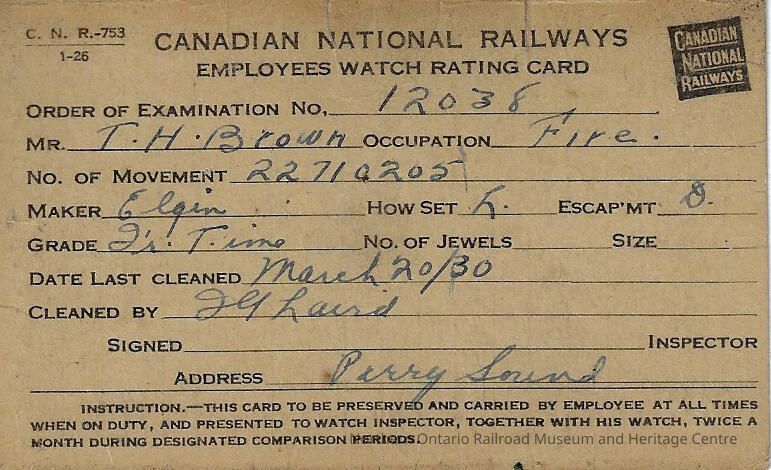 C. N. R.-753
1-26
CANADIAN NATIONAL RAILWAYS
EMPLOYEES WATCH RATING CARD
CANADIAN
NATIONAL
RAILWAYS
ORDER OF EXAMINATION NO. 12038
MR. T. H. Brown OCCUPATION Fire.
NO. OF MOVEMENT 22710205
MAKER Elgin HOW SET L. ESCAP'MT D.
GRADE Fr. Time NO. OF JEWELS SIZE
DATE LAST CLEANED March 20/30
CLEANED BY Laird
SIGNED INSPECTOR
ADDRESS Parry Sound
INSTRUCTION.—THIS CARD TO BE PRESERVED AND CARRIED BY EMPLOYEE AT ALL TIMES
WHEN ON DUTY, AND PRESENTED TO WATCH INSPECTOR, TOGETHER WITH HIS WATCH, TWICE A
MONTH DURING DESIGNATED COMPARISON PERIODS.
Ontario Railroad Museum and Heritage Centre